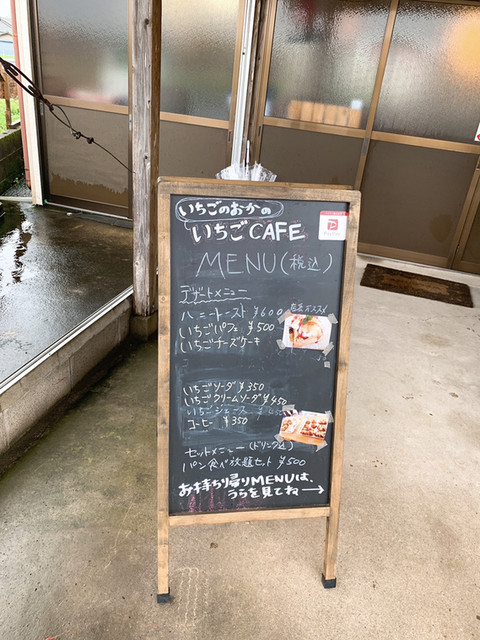 いちごのおかの
いちごCAFE
PayPay
MENU(税込)
デザートメニュー
ハニートースト ¥600
店長オススメ!
いちごパフェ ¥500
いちごチーズケーキ
いちごソーダ ¥350
いちごクリームソーダ ¥450
いちごジュース ¥450
コーヒー ¥350
セットメニュー(ドリンク込)
パン食べ放題セット ¥500
お持ち帰りMENUは、
うらを見てね→